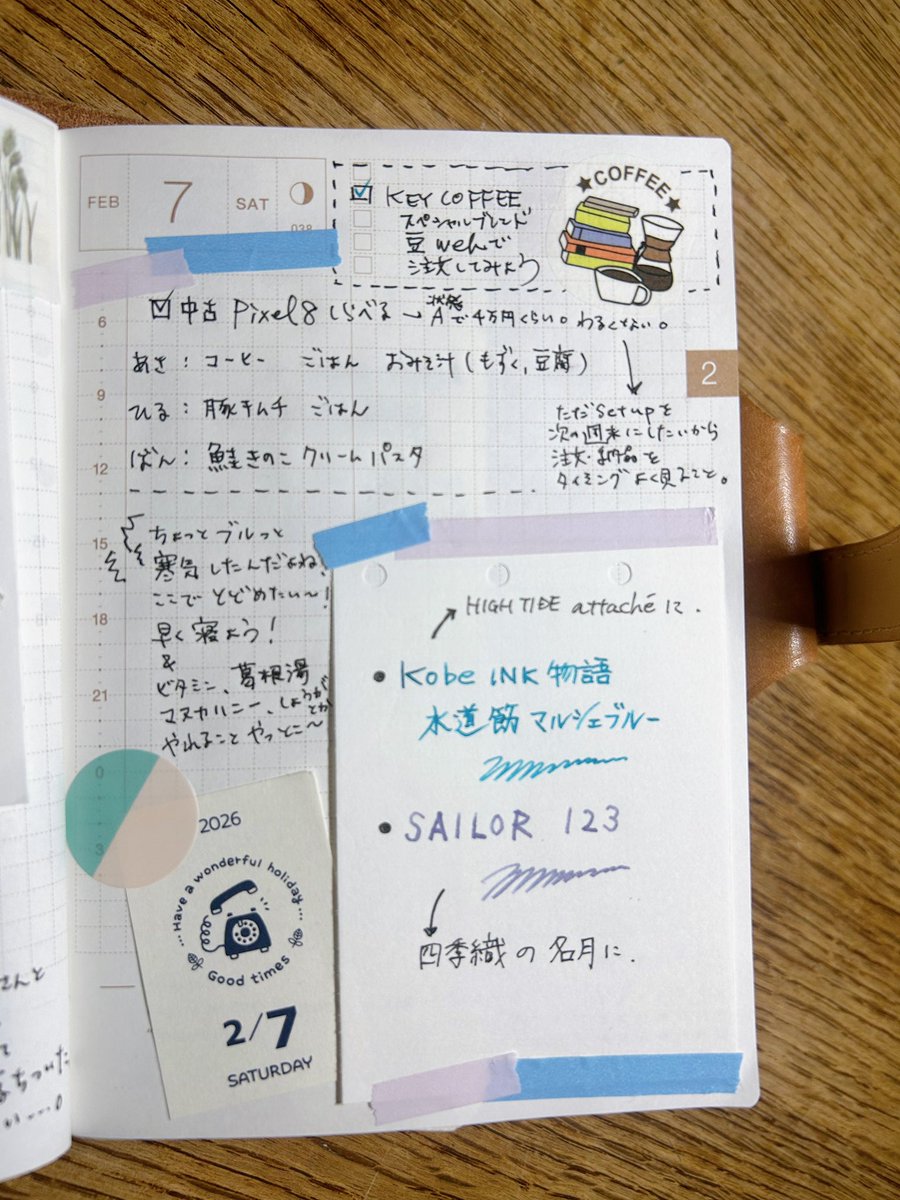 FEB 7 SAT
038
KEY COFFEE
スペシャルブレンド
豆 webで
注文してみよう
COFFEE
中古 Pixel8 しらべる → 状態Aで4万円くらい。わるくない。
2
あさ：コーヒー ごはん おみそ汁（もずく、豆腐）
ひる：豚キムチ ごはん
ばん：鮭きのこ クリームパスタ
ただ Set upを
次の週末にしたいから
注文・納品を
タイミングよく見ること。
6
9
12
15
18
21
0
3
ちょっと ブルっと
寒気したんだよね!
ここで とどめたい〜!
早く寝よう!
&
ビタミン、葛根湯
マヌカハニー、しょうがとか
やれること やっとこ〜
HIGHTIDE attachéに.
• Kobe INK 物語
水道筋 マルシェブルー
• SAILOR 123
四季織の名月に.
2026
Have a wonderful holiday
Good times
2/7
SATURDAY
さんと